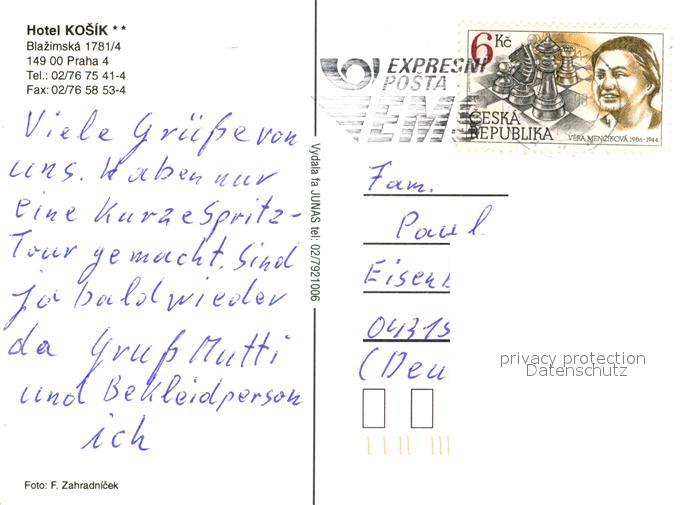 Hotel KOŠÍK **
Blažimská 1781/4
149 00 Praha 4
Tel.: 02/76 75 41-4
Fax: 02/76 58 53-4
Viele Grüße von
uns. Haben nur
eine Kurze Spritz-
Tour gemacht. Sind
ja bald wieder
da Gruß Mutti
und Bekleidperson
ich
Foto: F. Zahradníček
Vydala fa JUNAS tel: 02/7921006
EXPRESNÍ
POŠTA
EMS
6 Kč
ČESKÁ
REPUBLIKA
VĚRA MENČÍKOVÁ 1906-1944
Fam.
Paul
Eisen
0431
(Deu
privacy protection
Datenschutz